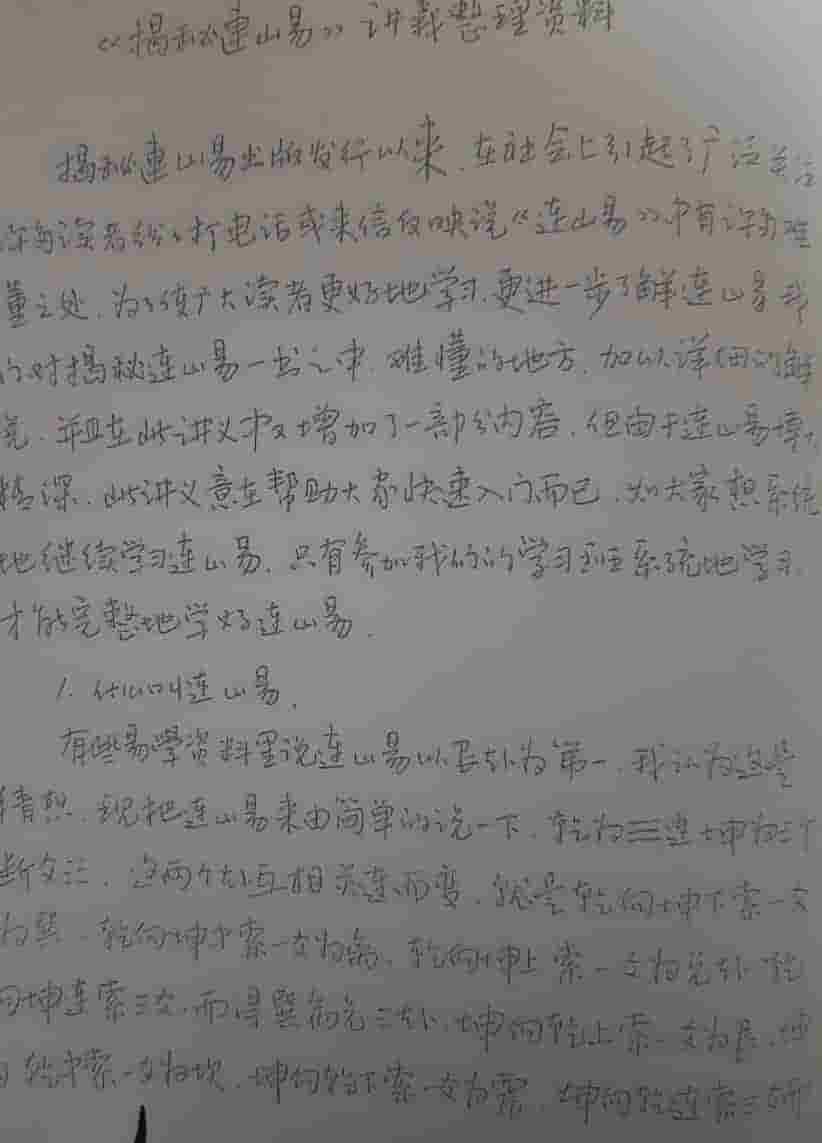 《揭秘连山易》讲义整理资料
揭秘连山易出版发行以来，在社会上引起了广泛关注
许多读者给我打电话或来信反映说《连山易》中有许多难
董之处，为了使广大读者更好地学习，更进一步了解连山易我
们对揭秘连山易一书之中，难懂的地方，加以详细的解
说，并且在此讲义中又增加了一部分内容，但由于连山易博大
精深，此讲义意在帮助大家快速入门而已，如大家想系统
地继续学习连山易，只有参加我们的学习班系统地学习，
才能完整地学好连山易。
1. 什么叫连山易，
有些易學资料里说连山易以艮卦为第一，我认为这是
猜想，现把连山易来由简单的说一下，乾为三连坤为三个
断爻，这两个卦互相关连而变，就是乾向坤下索一爻
为巽，乾向坤中索一爻为离，乾向坤上索一爻为兑卦 乾
向坤连索三次，而得巽离兑三卦，坤向乾上索一爻为艮，坤
向乾中索一爻为坎，坤向乾下索一爻为震，坤向乾连索三